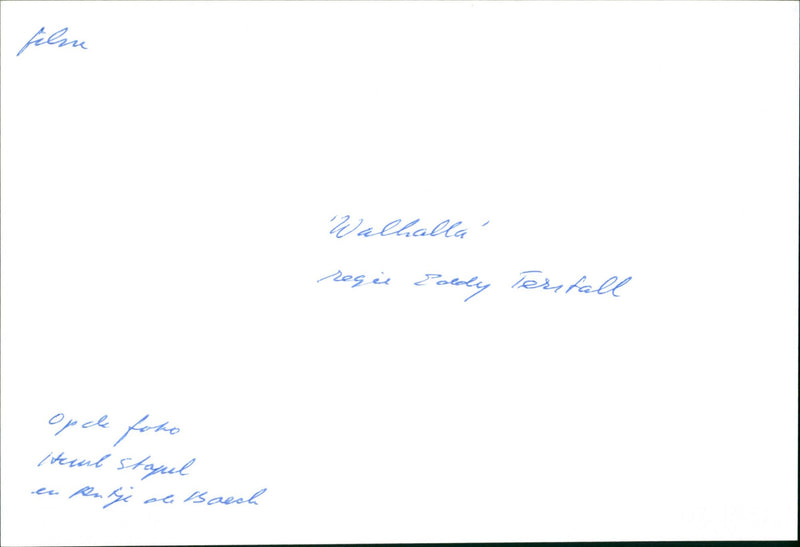 film
'Walhalla'
regie Eddy Terstall
Op de foto
Huub Stapel
en Antje de Boeck